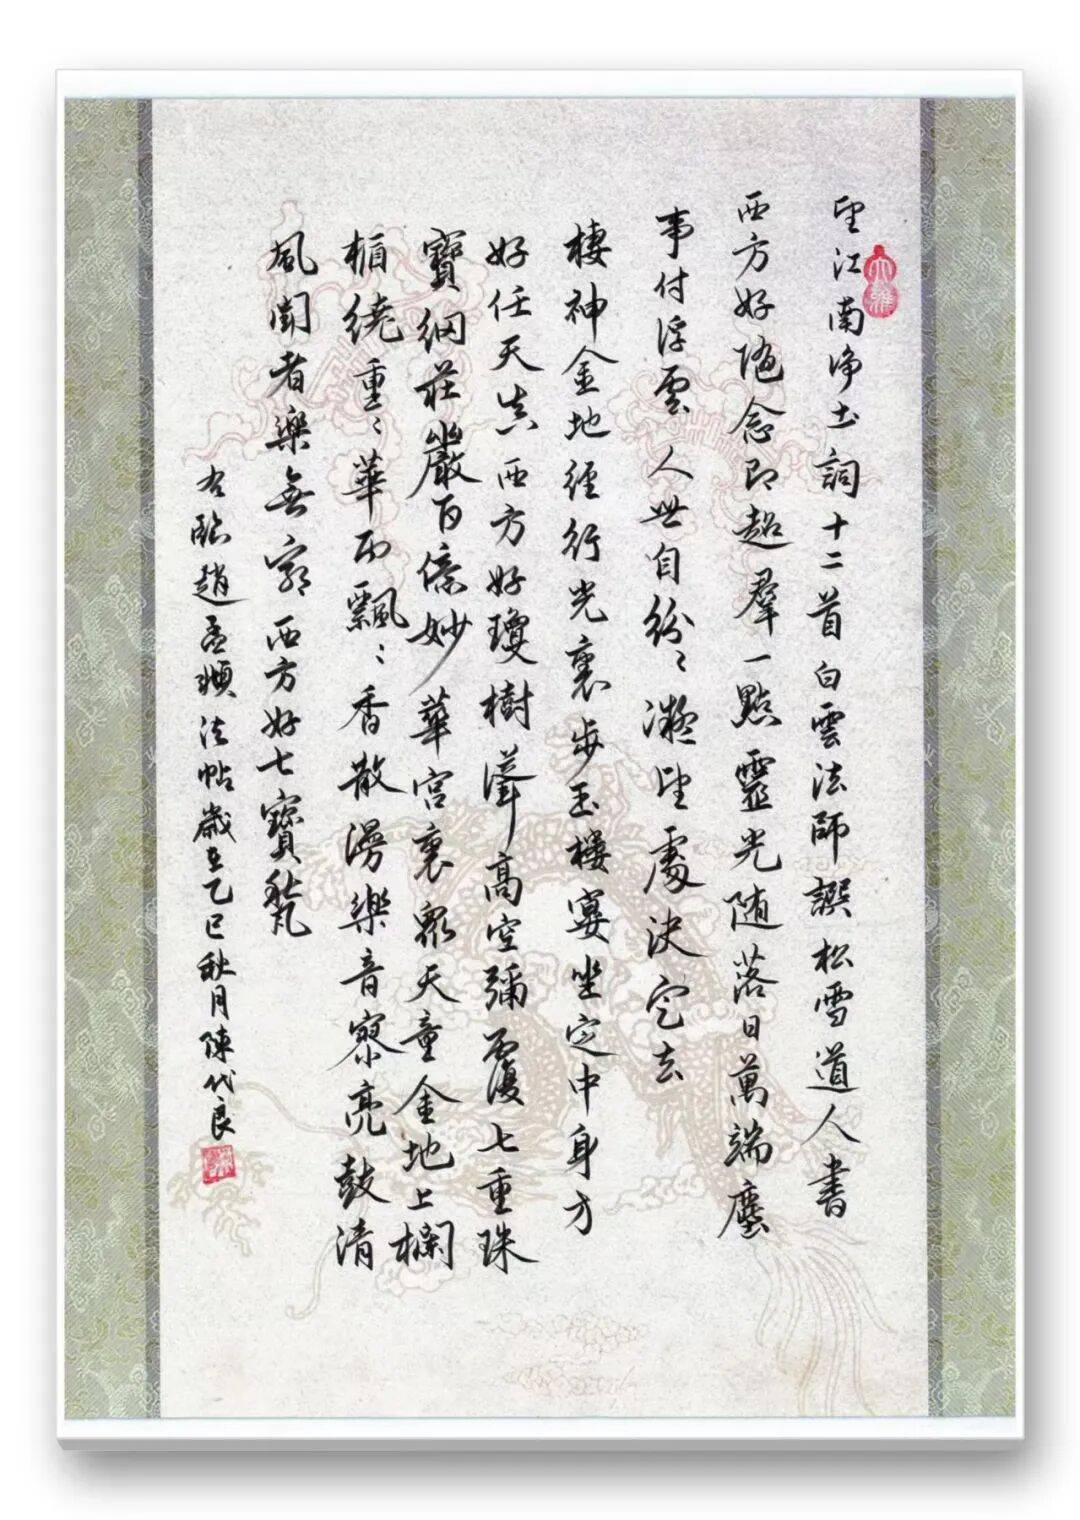 望江南净土詞十二首白雲法師譔松雪道人書
大雅
西方好隨念即超羣一點靈光随落日萬端塵
事付浮雲人世自紛〻凝望處決定去
棲神金地經行光裏步玉樓宴坐定中身方
好任天真西方好瓊樹聳高空彌覆七重珠
寶網莊嚴百億妙華宮裏衆天童金地上欄
楯繞重〻華雨飄〻香散漫樂音寥亮鼓清
風聞者樂無窮西方好七寶甃
右臨趙孟頫法帖歲在乙巳秋月陳代良